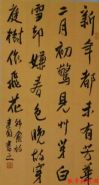 新年都未有芳華
二月初驚見草芽白
雪却嫌春色晚故穿
庭樹作飛花